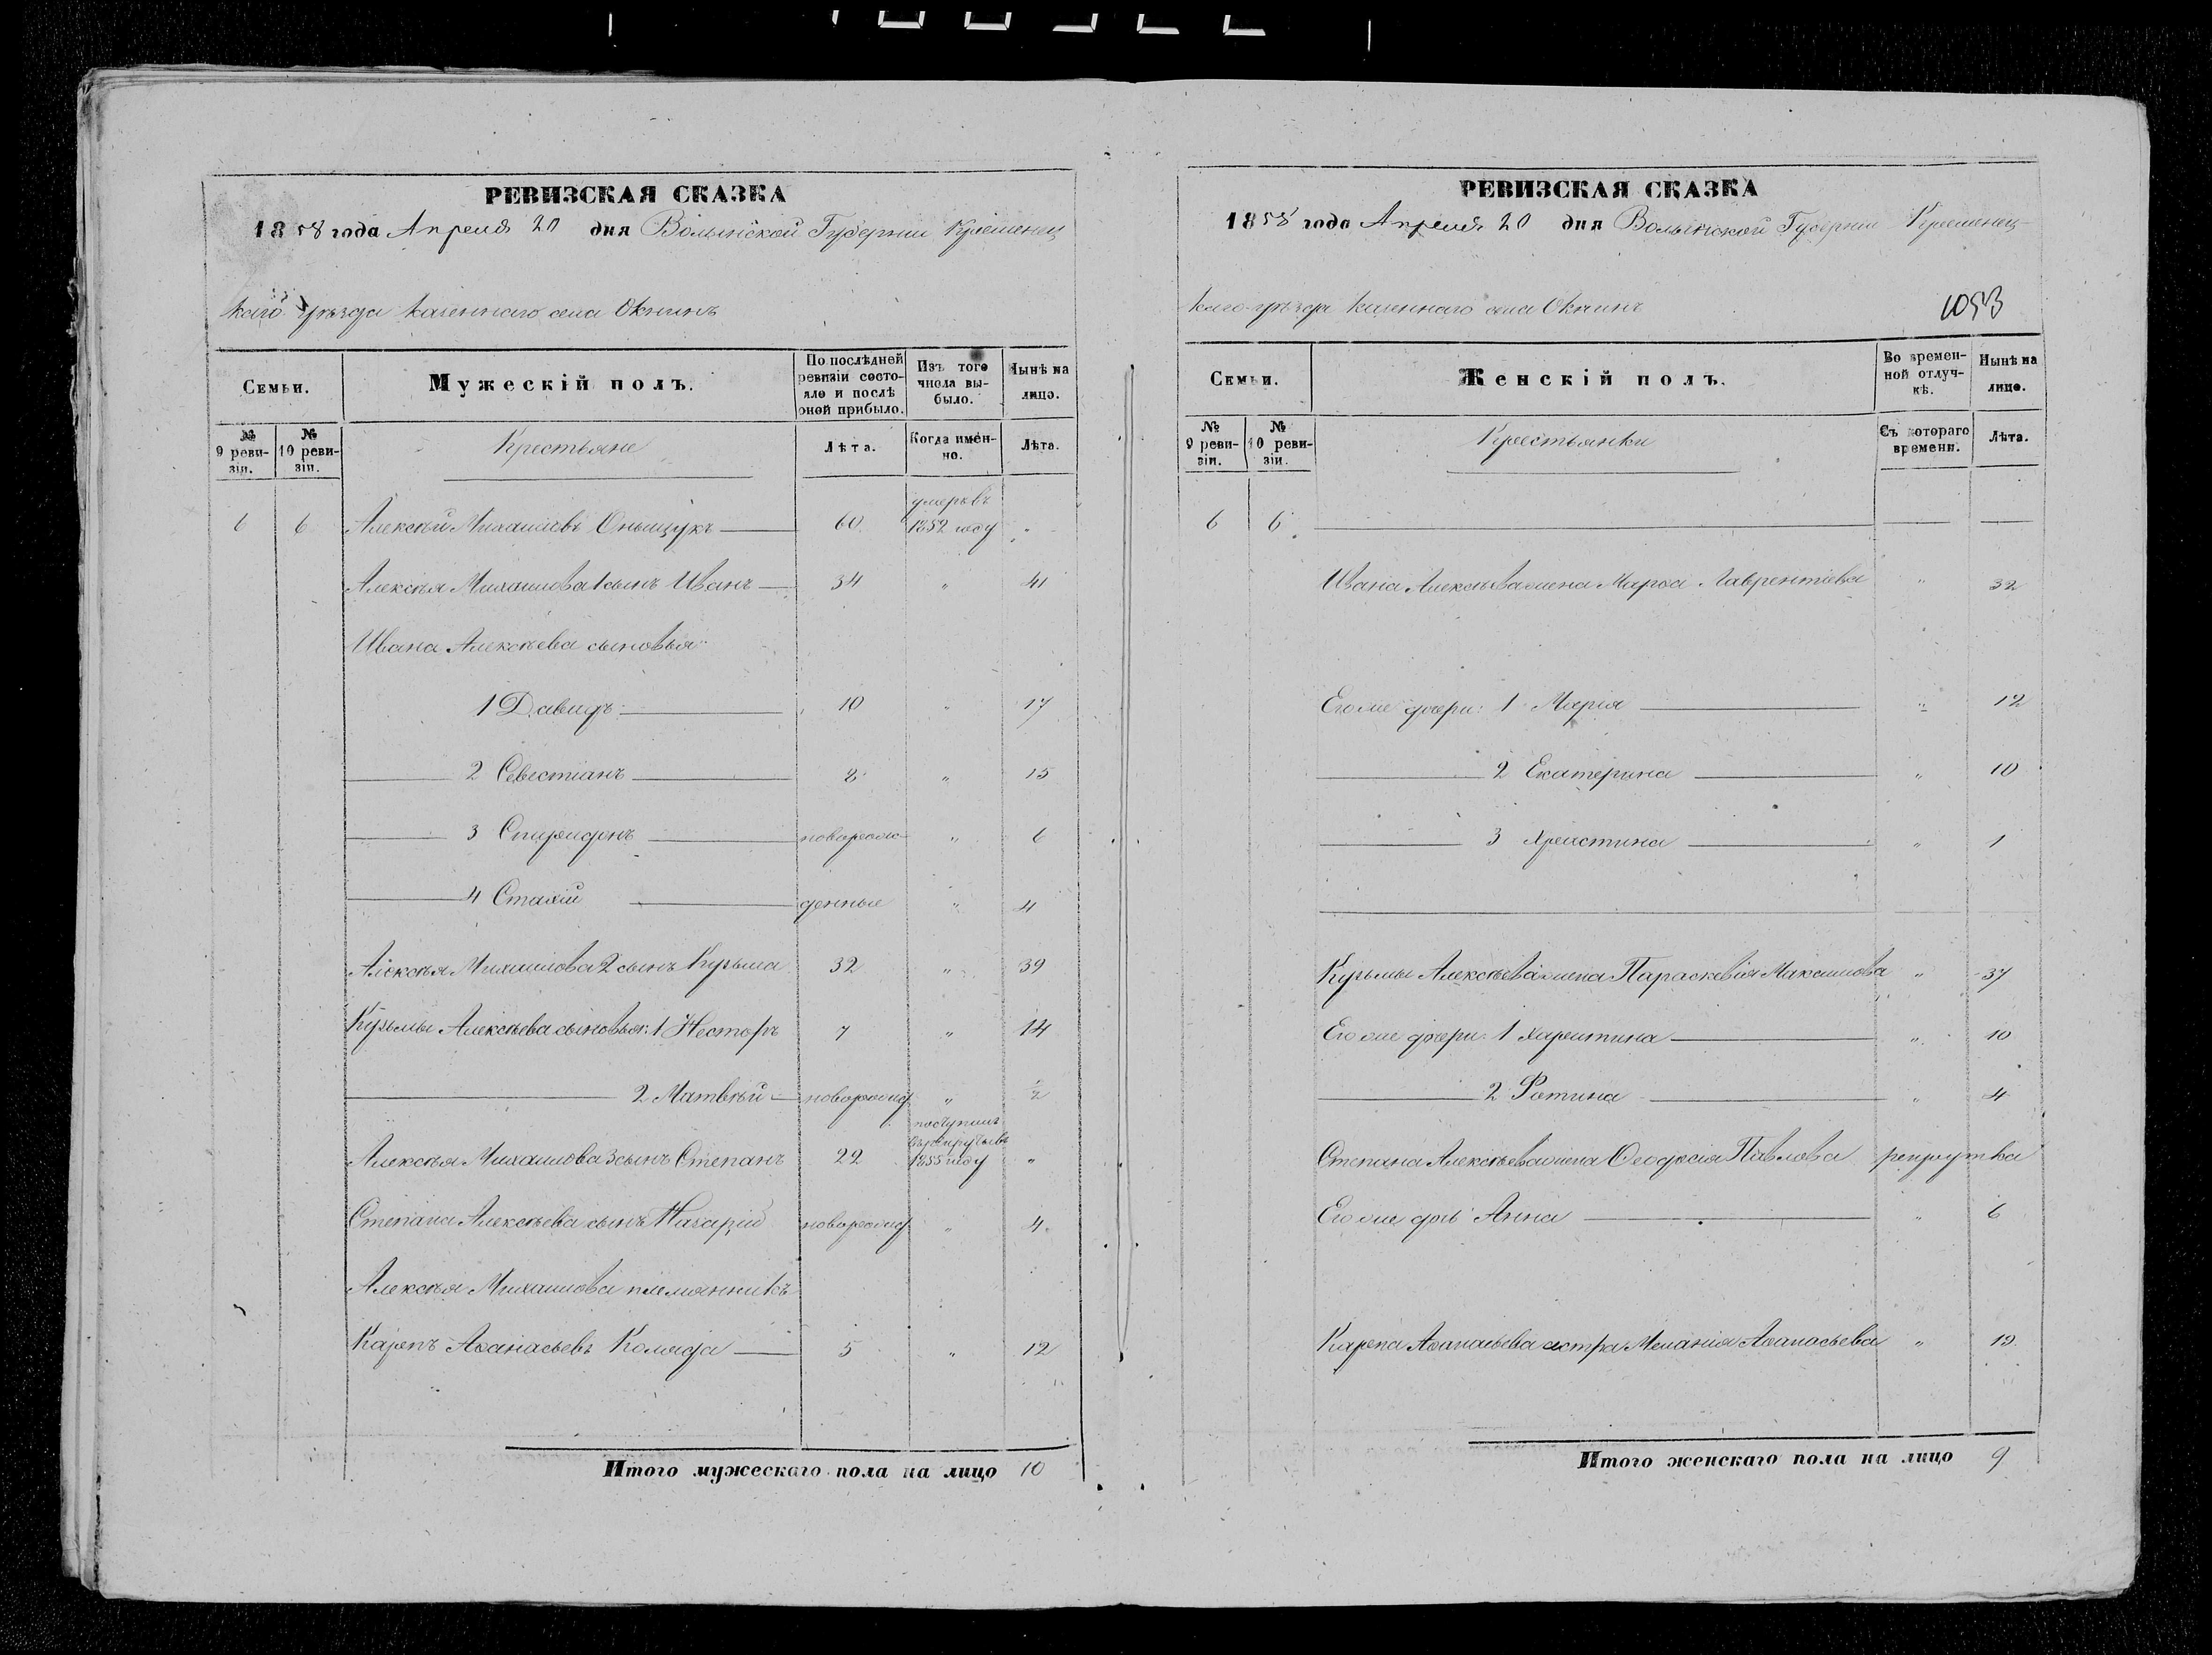 РЕВИЗСКАЯ СКАЗКА
1858 года Апреля 20 дня Волынской Губернии Кременец
каго уѣзда казеннаго села Окнинъ
Семьи.
Мужескій полъ.
По послѣдней ревизіи состояло и послѣ оной прибыло.
Изъ того числа выбыло.
Нынѣ на лицо.
№ 9 ревизіи.
№ 10 ревизіи.
Крестьяне
Лѣта.
Когда именно.
Лѣта.
6 6 Алексѣй Михайловъ Онищукъ 60 умеръ въ 1852 году "
Алексѣя Михайлова 1 сынъ Иванъ 34 " 41
Ивана Алексѣева сыновья:
1 Давидъ 10 " 17
2 Севестіанъ 8 " 15
3 Спиридонъ новорож- " 6
4 Стахій денные " 4
Алексѣя Михайлова 2 сынъ Кузьма 32 " 39
Кузьмы Алексѣева сыновья: 1 Несторъ 7 " 14
2 Матвѣй новорожд " 2
Алексѣя Михайлова 3 сынъ Степанъ 22 поступилъ въ рекруты въ 1855 году "
Степана Алексѣева сынъ Назарій новорожд " 4
Алексѣя Михайлова племянникъ
Карпъ Аѳанасьевъ Коляда 5 " 12
Итого мужескаго пола на лицо 10
РЕВИЗСКАЯ СКАЗКА
1858 года Апреля 20 дня Волынской Губернии Кременец-
каго уѣзда казеннаго села Окнинъ
1053
Семьи.
Женскій полъ.
Во временной отлучкѣ.
Нынѣ на лицо.
№ 9 ревизіи.
№ 10 ревизіи.
Крестьянки
Съ котораго времени.
Лѣта.
6 6
Ивана Алексѣева жена Марѳа Лаврентіева " 32
Его же дочери: 1 Марія " 12
2 Екатерина " 10
3 Христина " 1
Кузьмы Алексѣева жена Параскевія Максимова " 37
Его же дочери: 1 Харитина " 10
2 Фотина " 4
Степана Алексѣева жена Ѳеодосія Павлова рекрутка
Его же дочь Анна " 6
Карпа Аѳанасьева сестра Меланія Аѳанасьева " 19
Итого женскаго пола на лицо 9